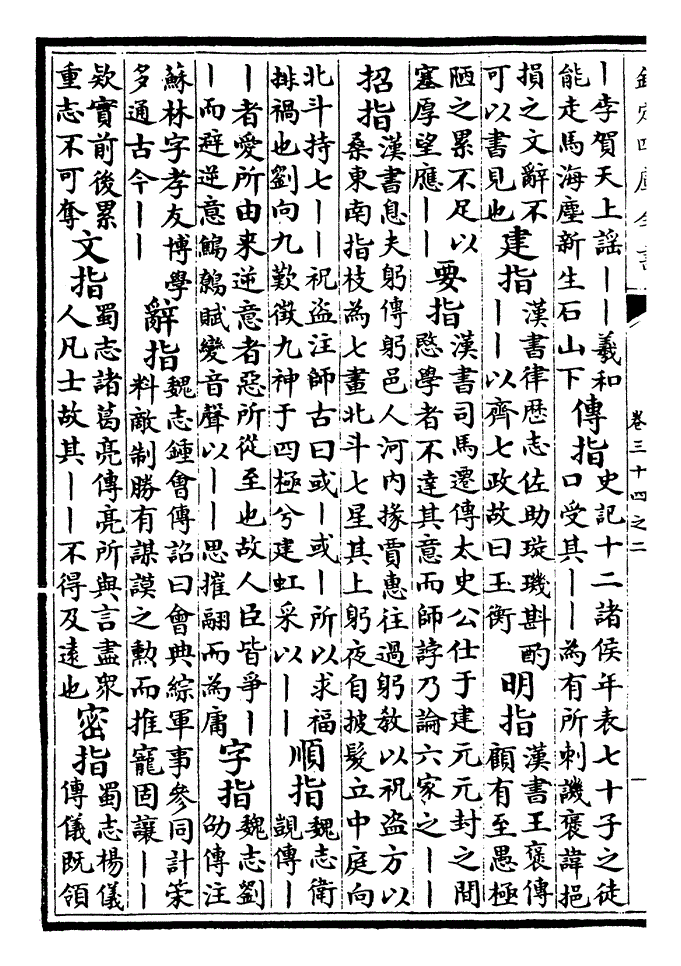 欽定四庫全書
卷三十四之二
一
｜李賀天上謠｜｜羲和
能走馬海塵新生石山下
傳指
史記十二諸侯年表七十子之徒
口受其｜｜為有所刺譏褒諱挹
損之文辭不
可以書見也
建指
漢書律歴志佐助璇璣斟酌
｜｜以齊七政故曰玉衡
明指
漢書王褒傳
顧有至愚極
陋之累不足以
塞厚望應｜｜
要指
漢書司馬遷傳太史公仕于建元元封之間
愍學者不達其意而師誖乃論六家之｜｜
招指
漢書息夫躬傳躬邑人河内掾賈惠往過躬教以祝盗方以
桑東南指枝為七畫北斗七星其上躬夜自披髮立中庭向
北斗持七｜｜祝盗注師古曰或｜或｜所以求福
排禍也劉向九歎徴九神于四極兮建虹采以｜｜
順指
魏志衛
覬傳｜
｜者愛所由来逆意者惡所從至也故人臣皆爭｜
｜而避逆意鷦鷯賦變音聲以｜｜思摧翮而為庸
字指
魏志劉
劭傳注
蘇林字孝友博學
多通古今｜｜
辭指
魏志鍾會傳詔曰會典綜軍事參同計䇿
料敵制勝有謀謨之勲而推寵固讓｜｜
欵實前後累
重志不可奪
文指
蜀志諸葛亮傳亮所與言盡衆
人凡士故其｜｜不得及遠也
密指
蜀志楊儀
傳儀既領